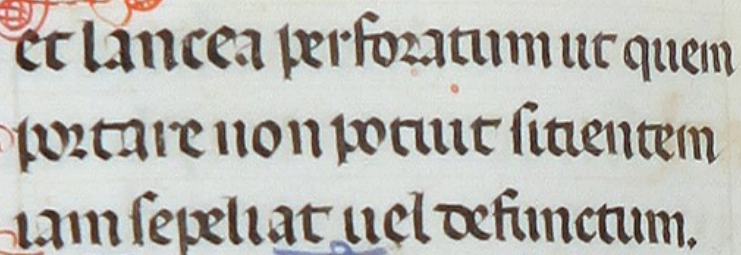 et lancea perforatum ut quem
portare non potuit sitientem
iam sepeliat uel defunctum.